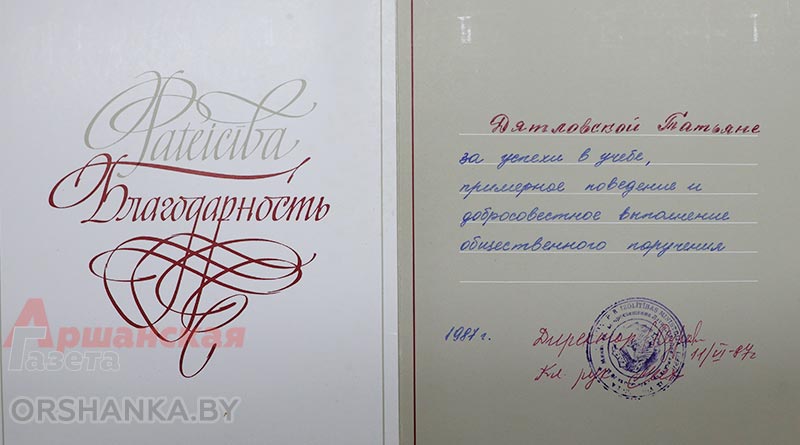 Pateicība
Благодарность
Аршанская
Газета
ORSHANKA.BY
Дятловской Татьяне
за успехи в учебе,
примерное поведение и
добросовестное выполнение
общественного поручения
1987 г.
Директор
11/VI-87г
Кл. рук.